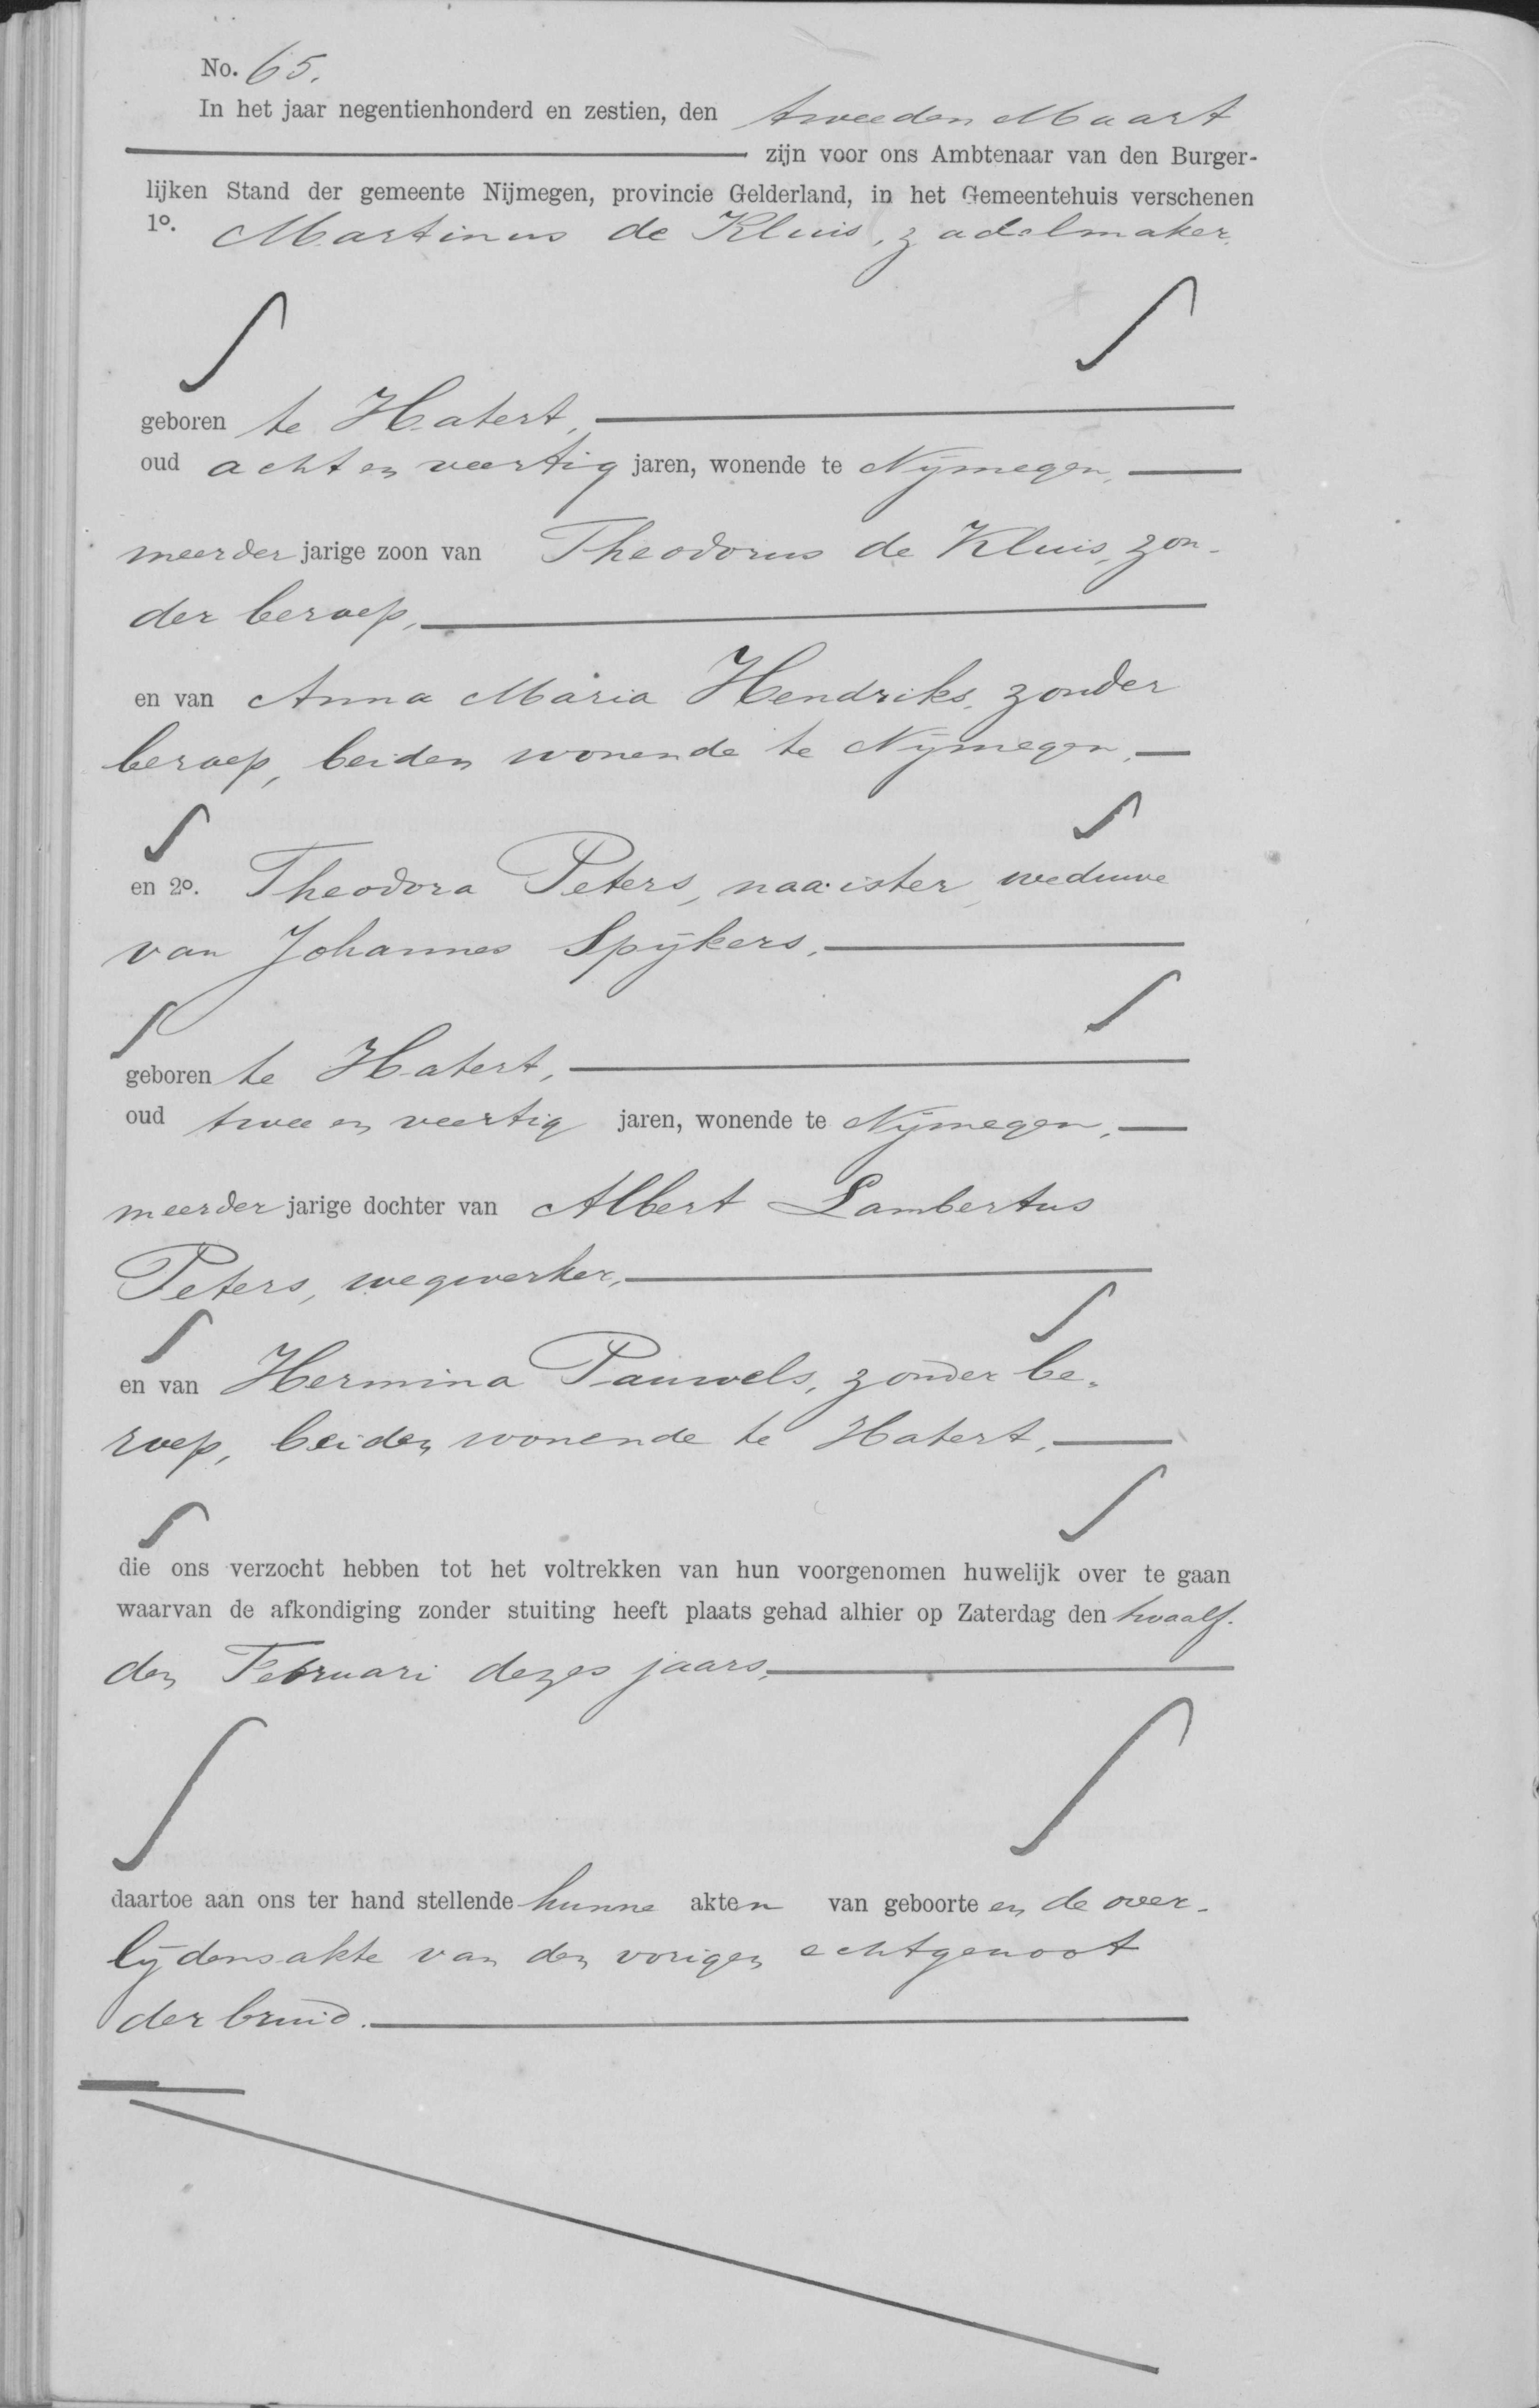 No. 65.
In het jaar negentienhonderd en zestien, den tweeden Maart
zijn voor ons Ambtenaar van den Burger-
lijken Stand der gemeente Nijmegen, provincie Gelderland, in het Gemeentehuis verschenen
1o. Martinus de Kluis, zadelmaker,
geboren te Hatert,
oud acht en veertig jaren, wonende te Nijmegen,
meerderjarige zoon van Theodorus de Kluis, zon-
der beroep,
en van Anna Maria Hendriks, zonder
beroep, beiden wonende te Nijmegen,
en 2o. Theodora Peters, naaister, weduwe
van Johannes Spijkers,
geboren te Hatert,
oud twee en veertig jaren, wonende te Nijmegen,
meerderjarige dochter van Albert Lambertus
Peters, wegwerker,
en van Hermina Pauwels, zonder be-
roep, beiden wonende te Hatert,
die ons verzocht hebben tot het voltrekken van hun voorgenomen huwelijk over te gaan
waarvan de afkondiging zonder stuiting heeft plaats gehad alhier op Zaterdag den twaalf-
den Februari dezes jaars,
daartoe aan ons ter hand stellende hunne akten van geboorte en de over-
lijdensakte van den vorigen echtgenoot
der bruid.